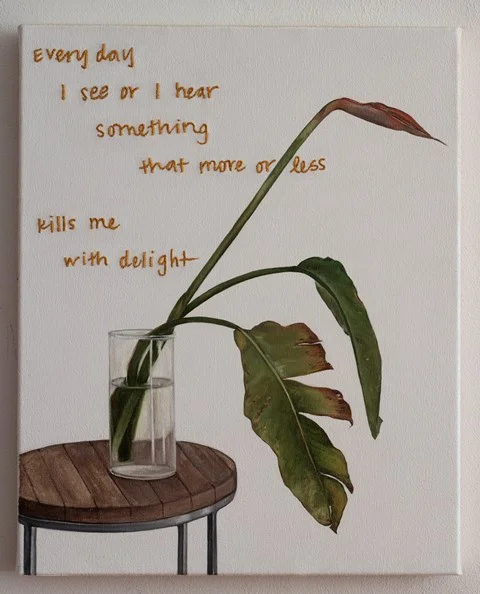 Every day
I see or I hear
something
that more or less
kills me
with delight